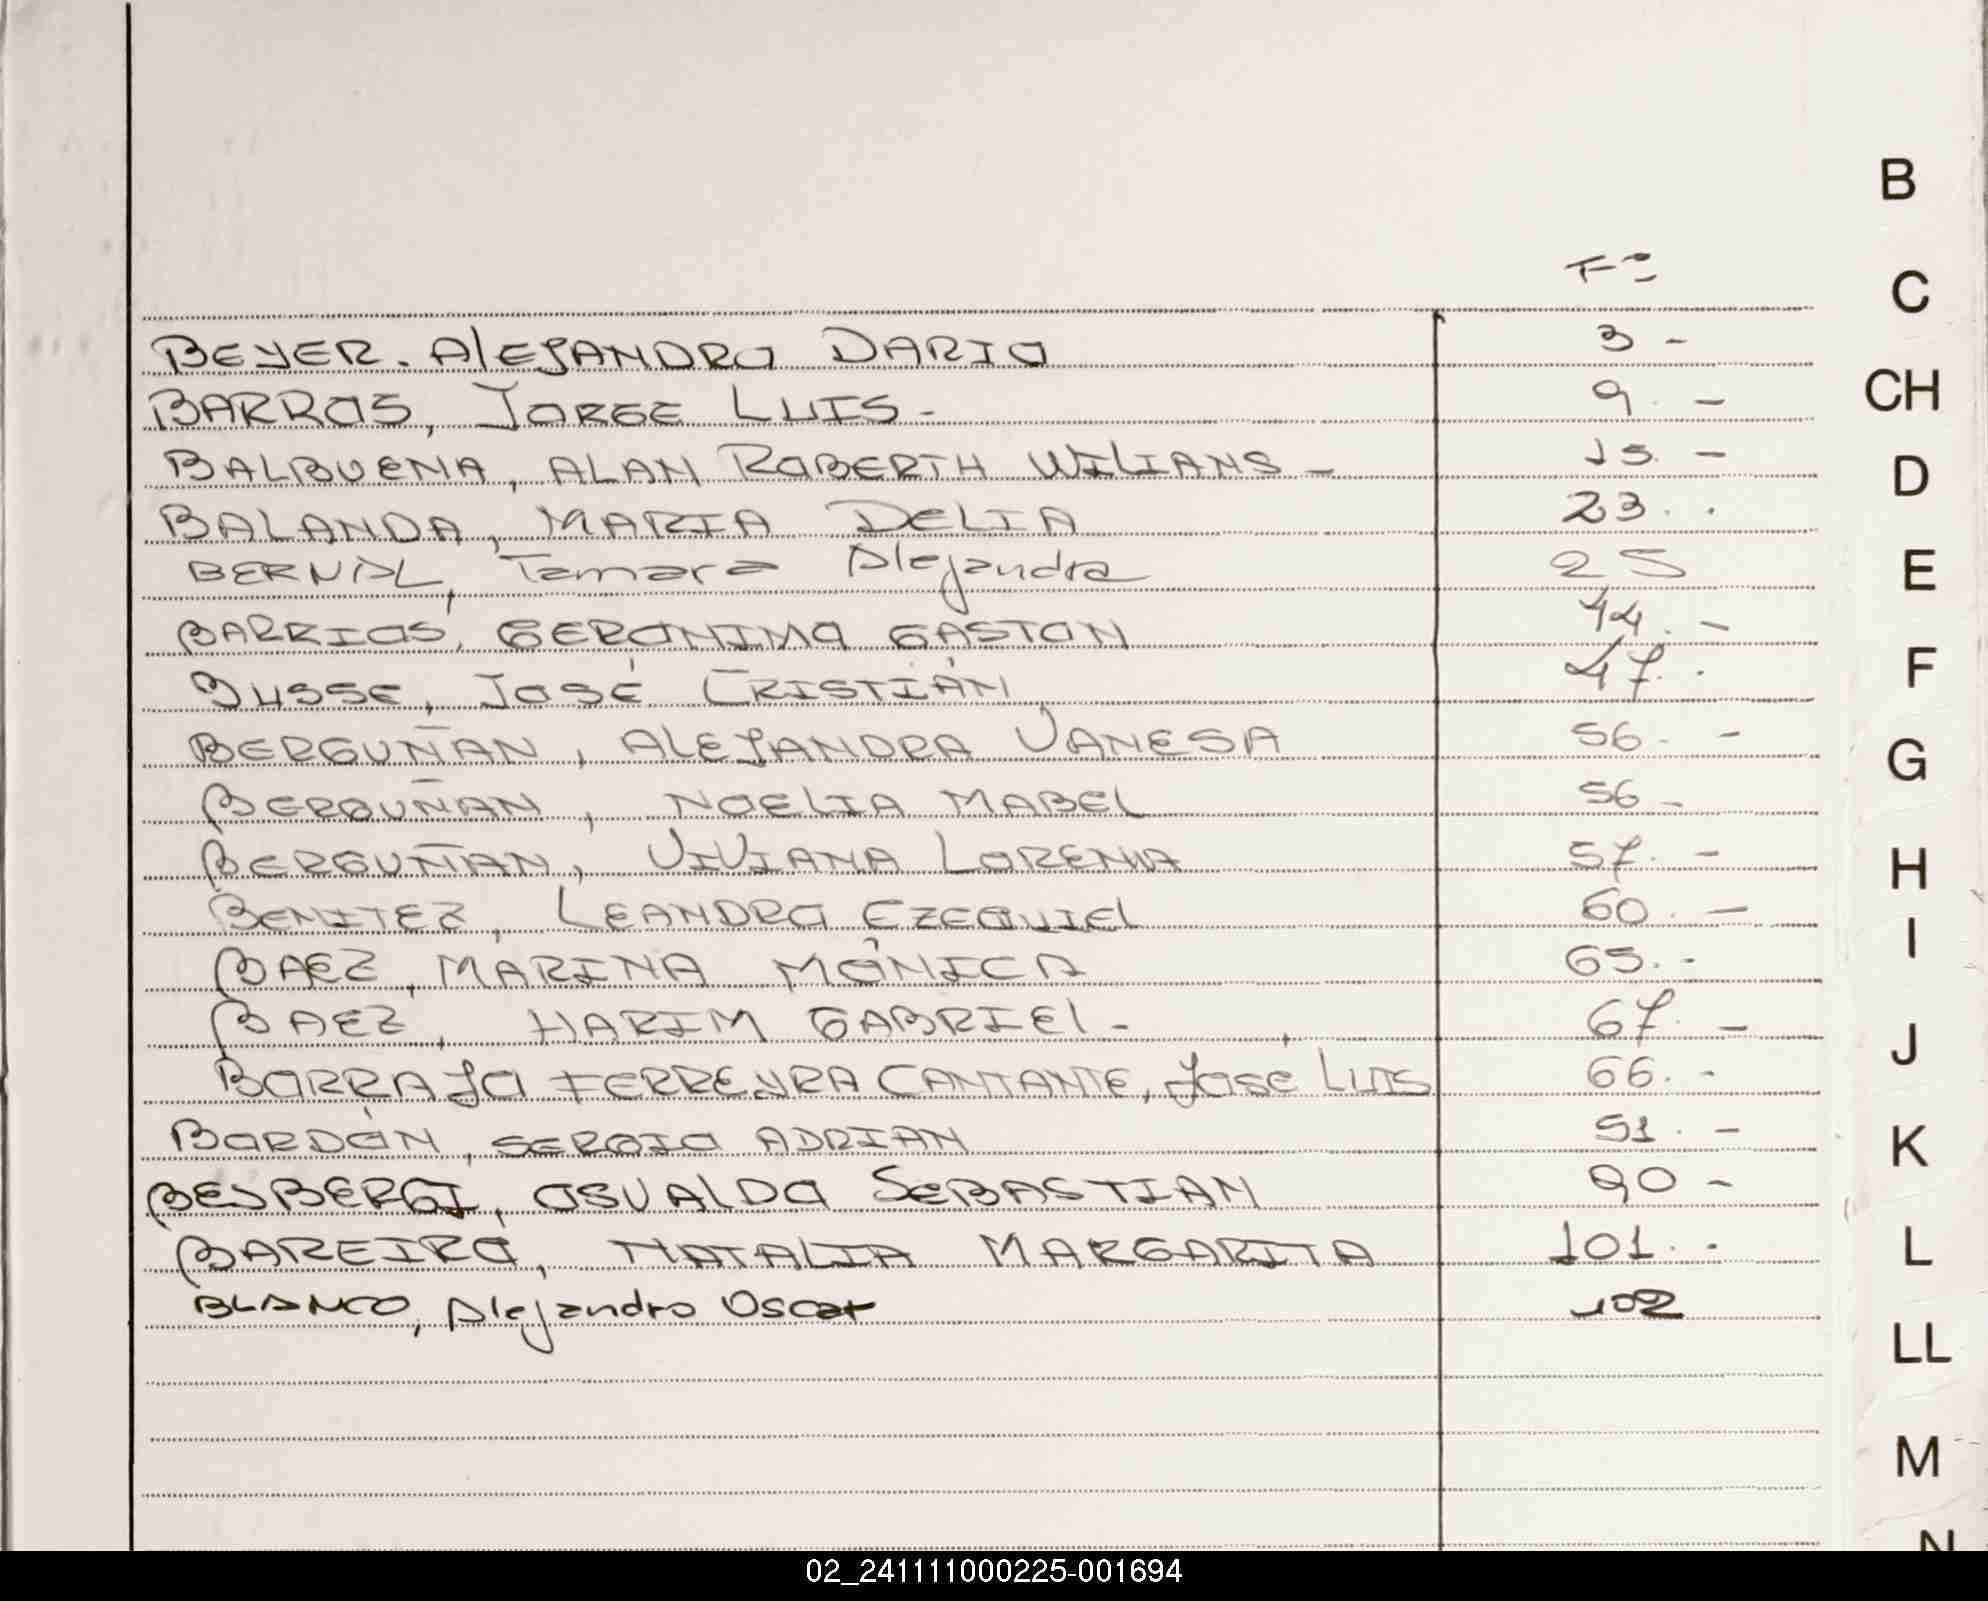 B
C
CH
D
E
F
G
H
I
J
K
L
LL
M
N
Fº
BEYER. AlEJANDRO DARIO 3 -
BARROS, JORGE LUIS - 9. -
BALBUENA, ALAN ROBERTH WILIANS - 15. -
BALANDA, MARIA DELIA 23. .
BERNAL, Tamara Alejandra 25
BARRIOS, GERONIMO GASTON 44. -
BUSSE, JOSÉ CRISTIÁN 47. .
BERGUÑAN, ALEJANDRA VANESA 56. -
BERGUÑAN, NOELIA MABEL 56 -
BERGUÑAN, VIVIANA LORENA 57. -
BENITEZ, LEANDRO EZEQUIEL 60. -
BAEZ, MARINA MÓNICA 65. -
BAEZ, HARIM GABRIEl - 67. -
BORRAJO FERREYRA CANTANTE, José LUIS 66. -
BORDÓN, SERGIO ADRIAN 51. -
OSVALDO SEBASTIAN 90 -
BAREIRO, NATALIA MARGARITA 101. -
BLANCO, Alejandro Oscar 102
02_241111000225-001694